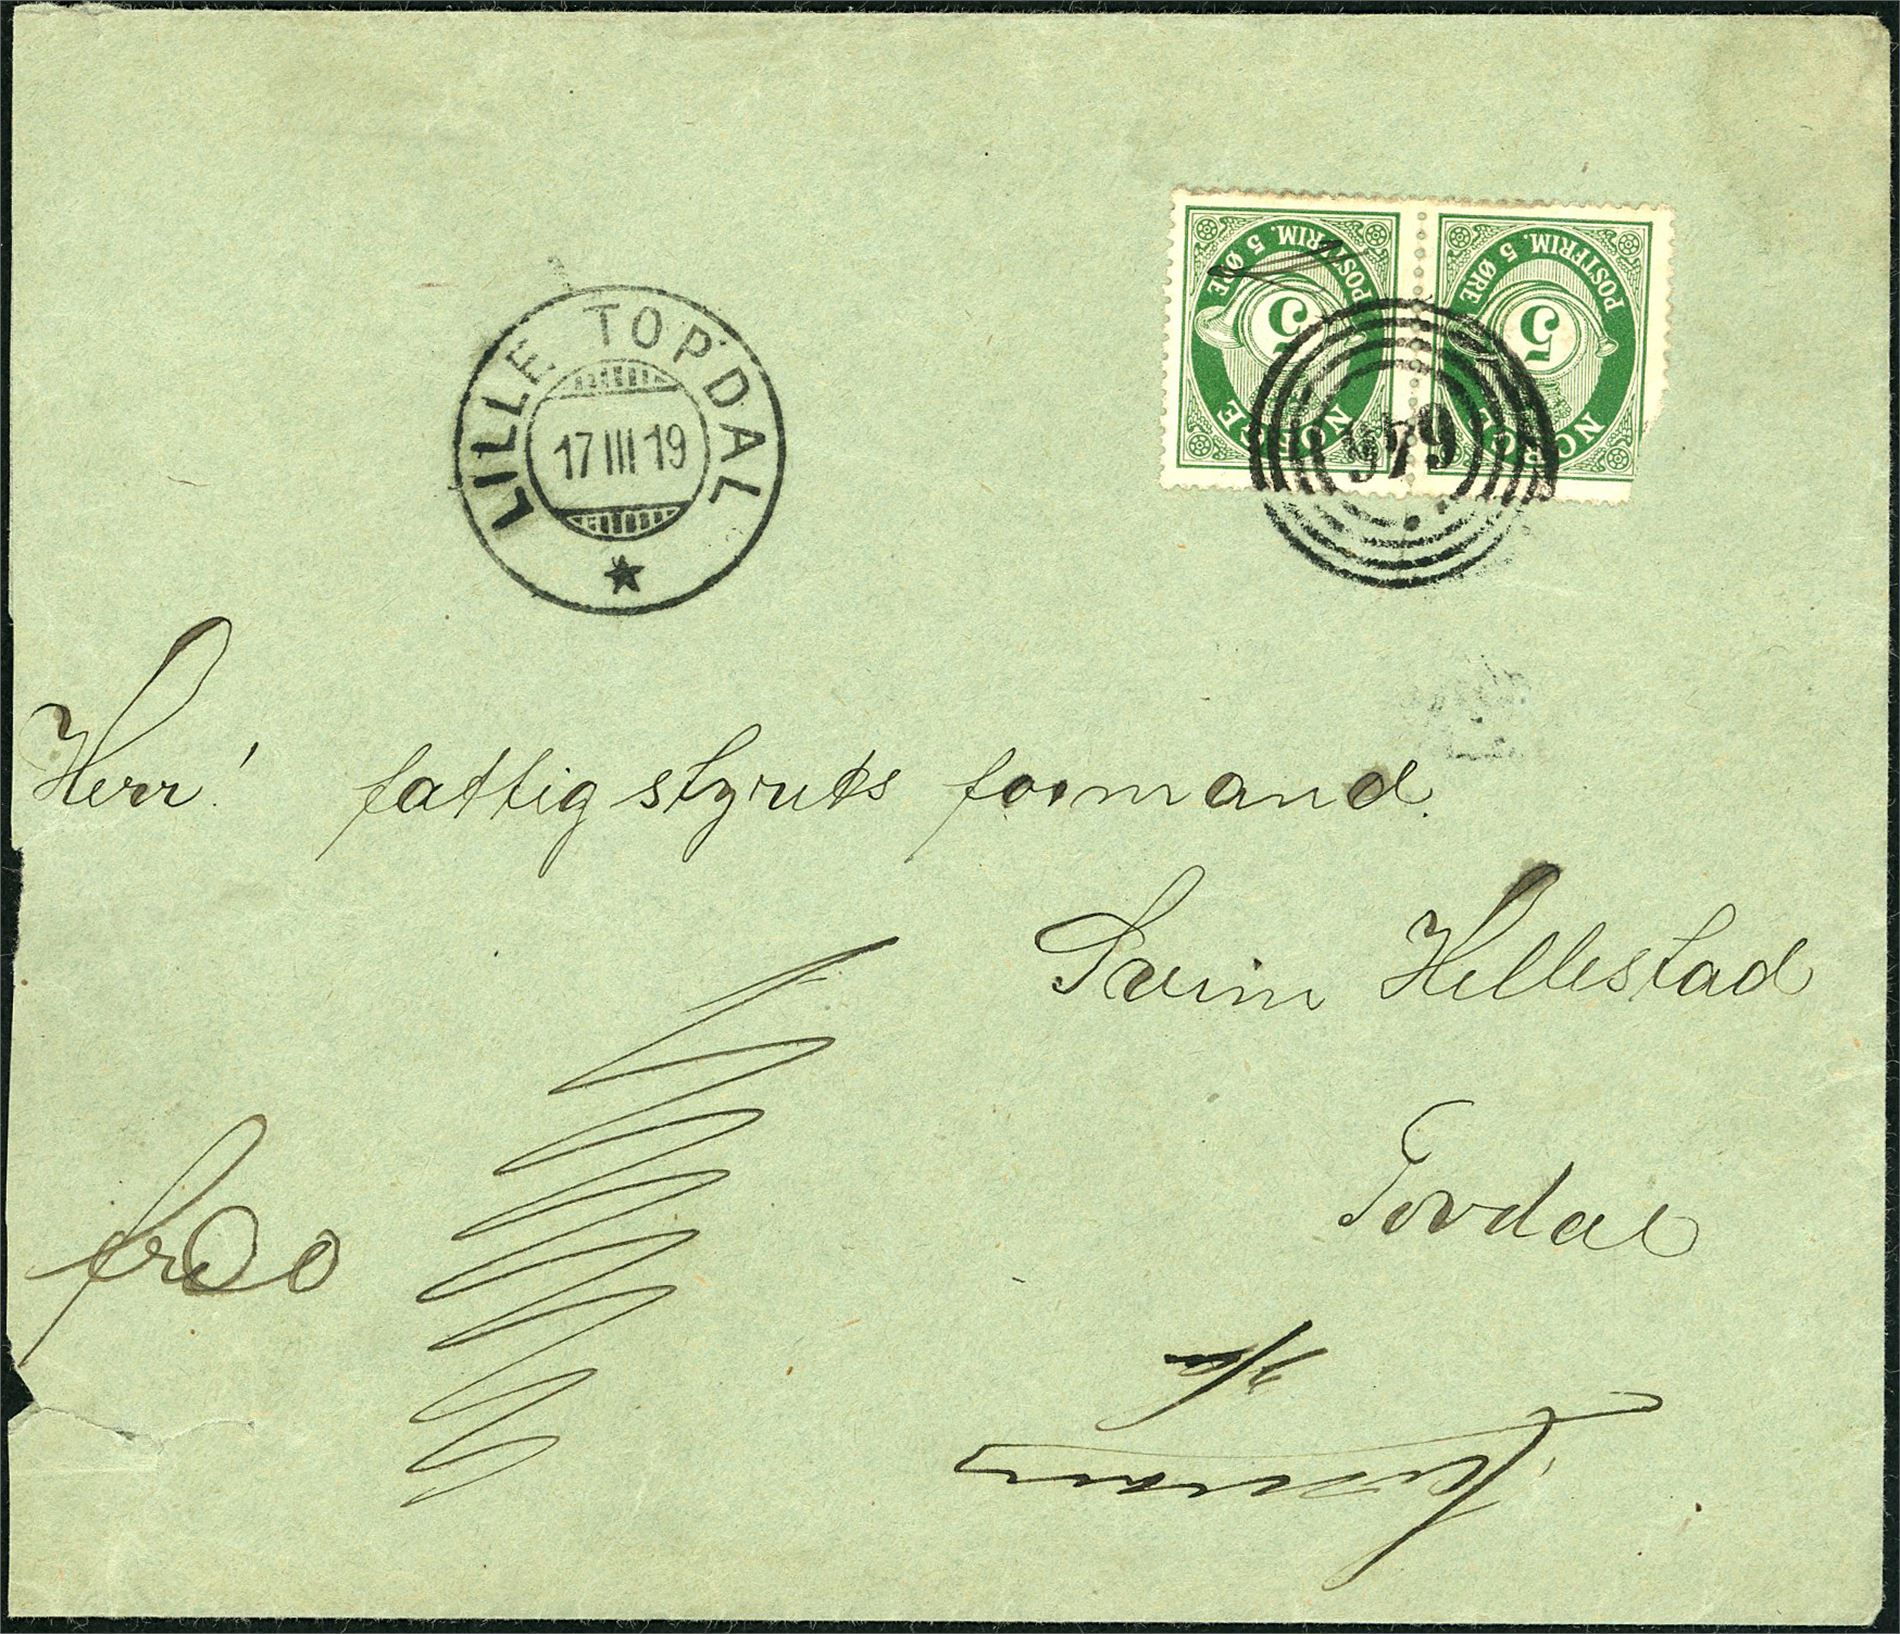 LILLE TOPDAL
17 III 19
POSTFRIM. 5 ØRE
5
NORGE
POSTFRIM. 5 ØRE
5
NORGE
979
Herr! fattigstyrets formand.
Hellestad
Tovdal